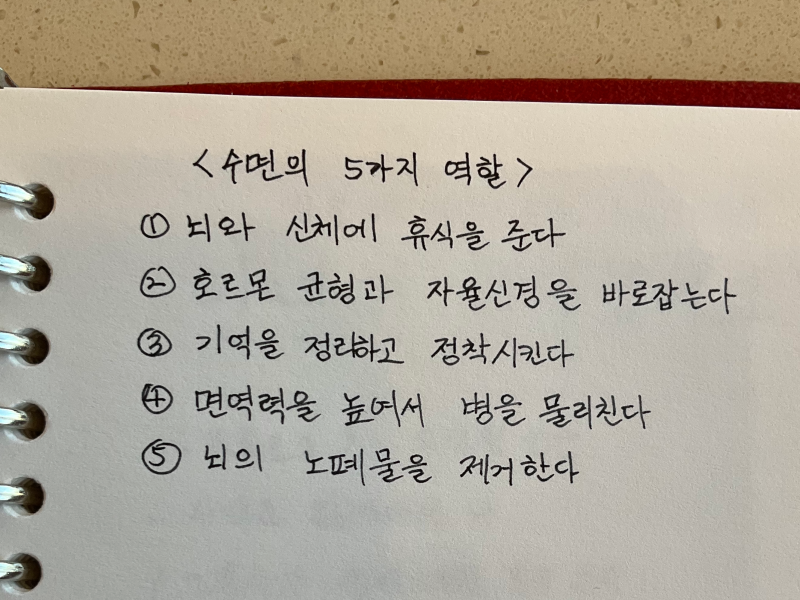 <수면의 5가지 역할>
① 뇌와 신체에 휴식을 준다
② 호르몬 균형과 자율신경을 바로잡는다
③ 기억을 정리하고 정착시킨다
④ 면역력을 높여서 병을 물리친다
⑤ 뇌의 노폐물을 제거한다